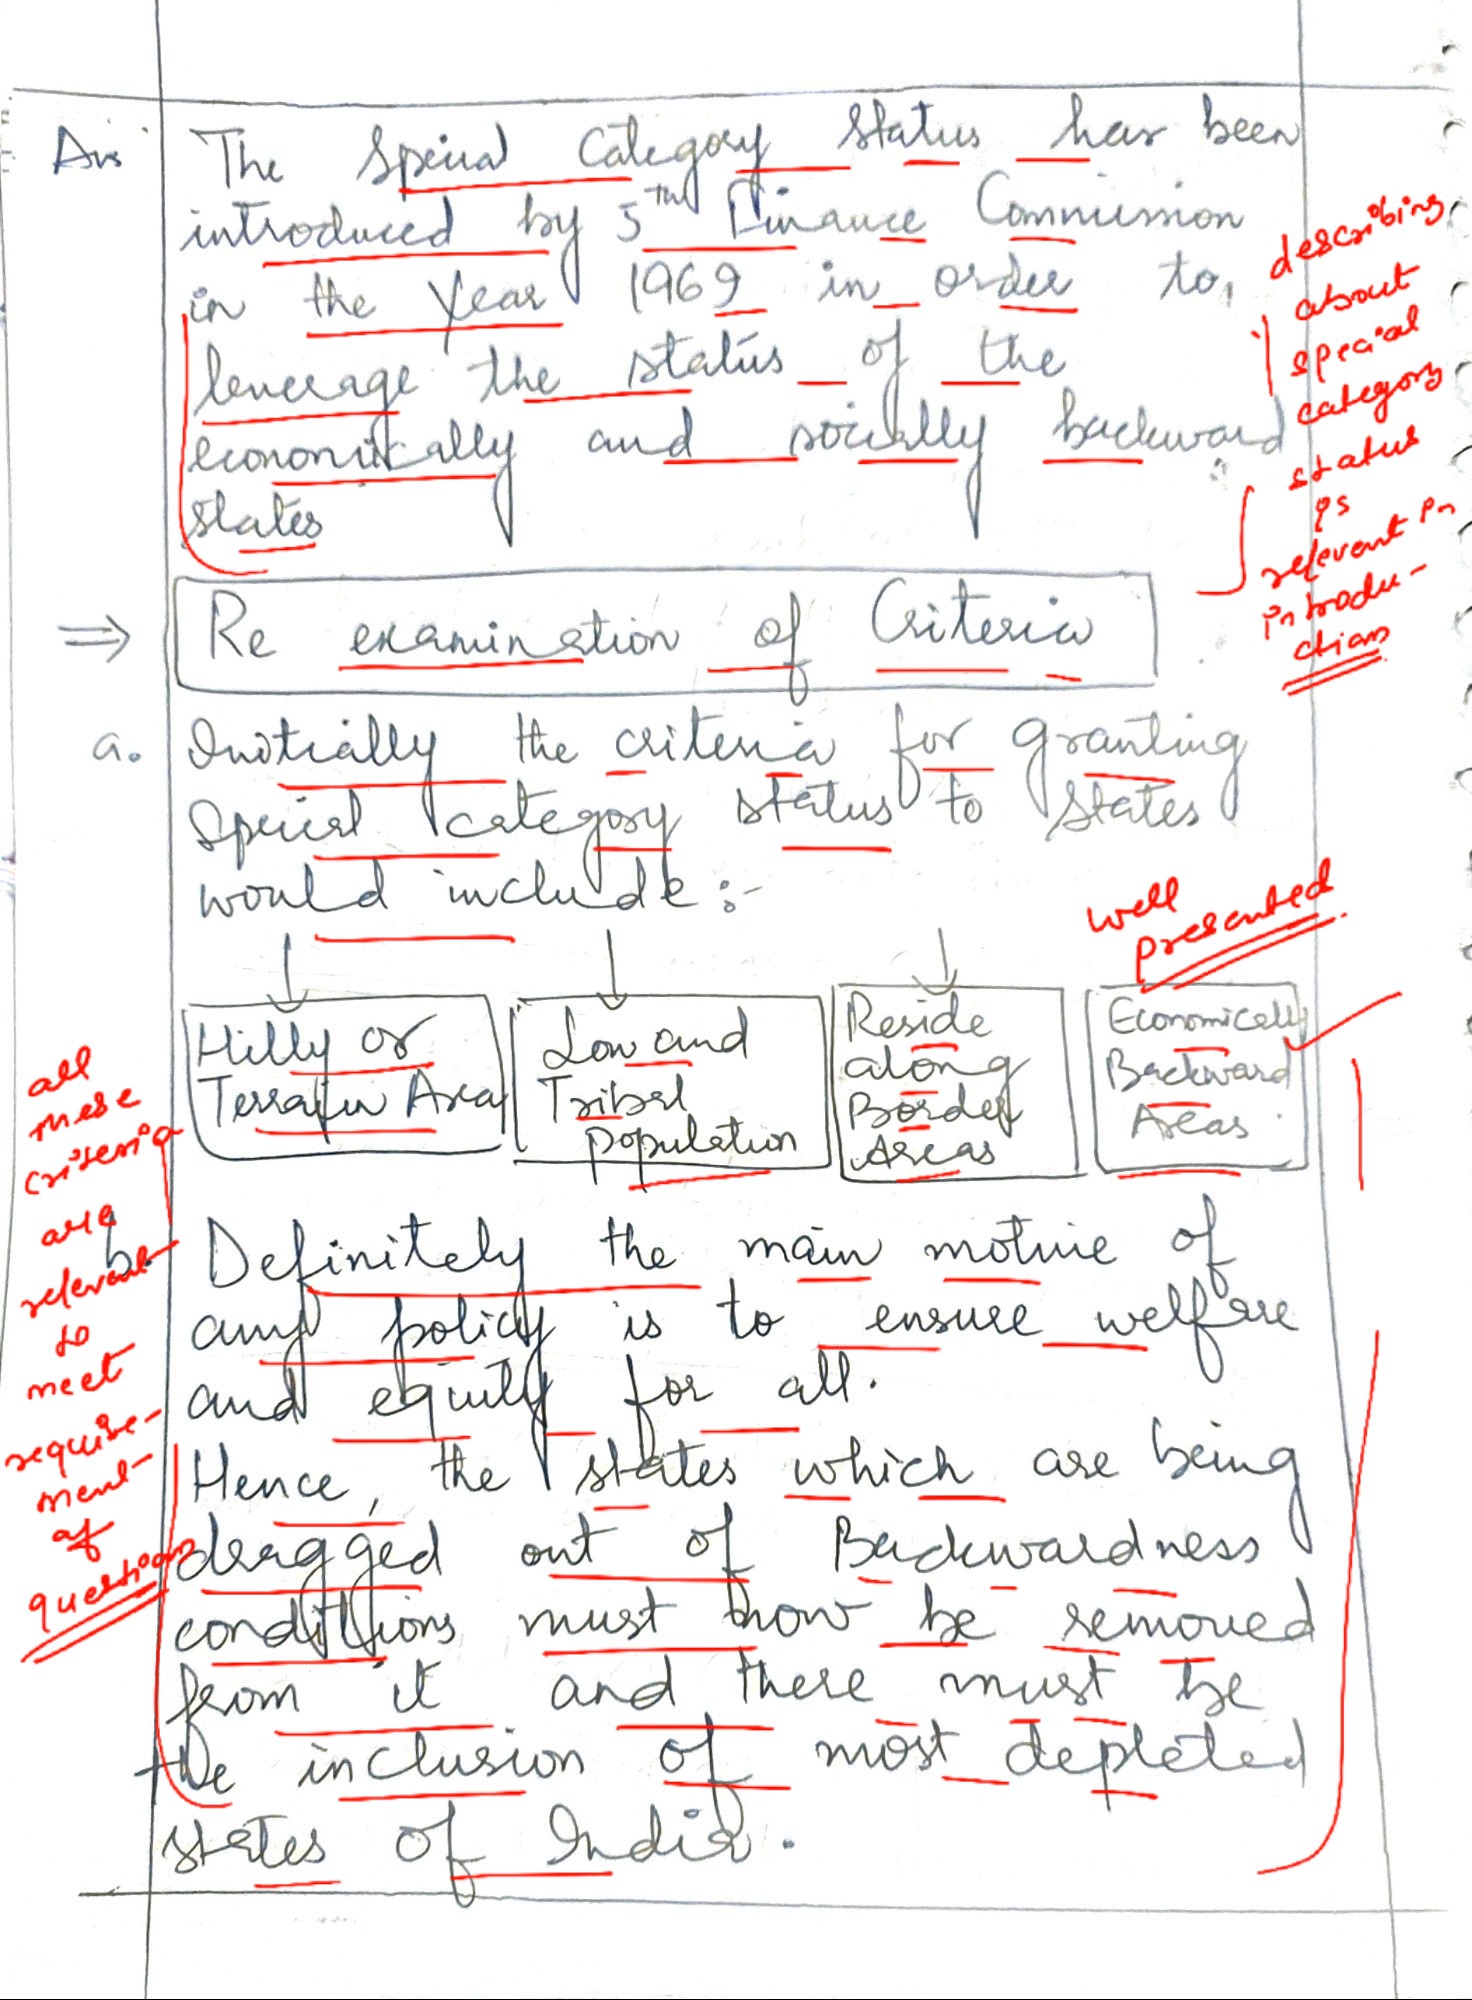 Ans The Special Category status has been
introduced by 5th Finance Commission
in the Year 1969 in order to,
leverage the status of the
economically and socially backward
states
describing
about
special
category
status
is
relevant in
introdu-
ction
⇒ Re examination of Criteria
a. Initially the criteria for granting
Special category status to states
would include :-
well
presented
Hilly or
Terrain Area
Low and
Tribal
population
Reside
along
Border
Areas
Economically
Backward
Areas.
all
these
criteria
are
relevant
to
meet
require-
ment
of
question
b. Definitely the main motive of
any policy is to ensure welfare
and equity for all.
Hence, the states which are being
dragged out of Backwardness
conditions must now be removed
from it and there must be
the inclusion of most depleted
states of India.